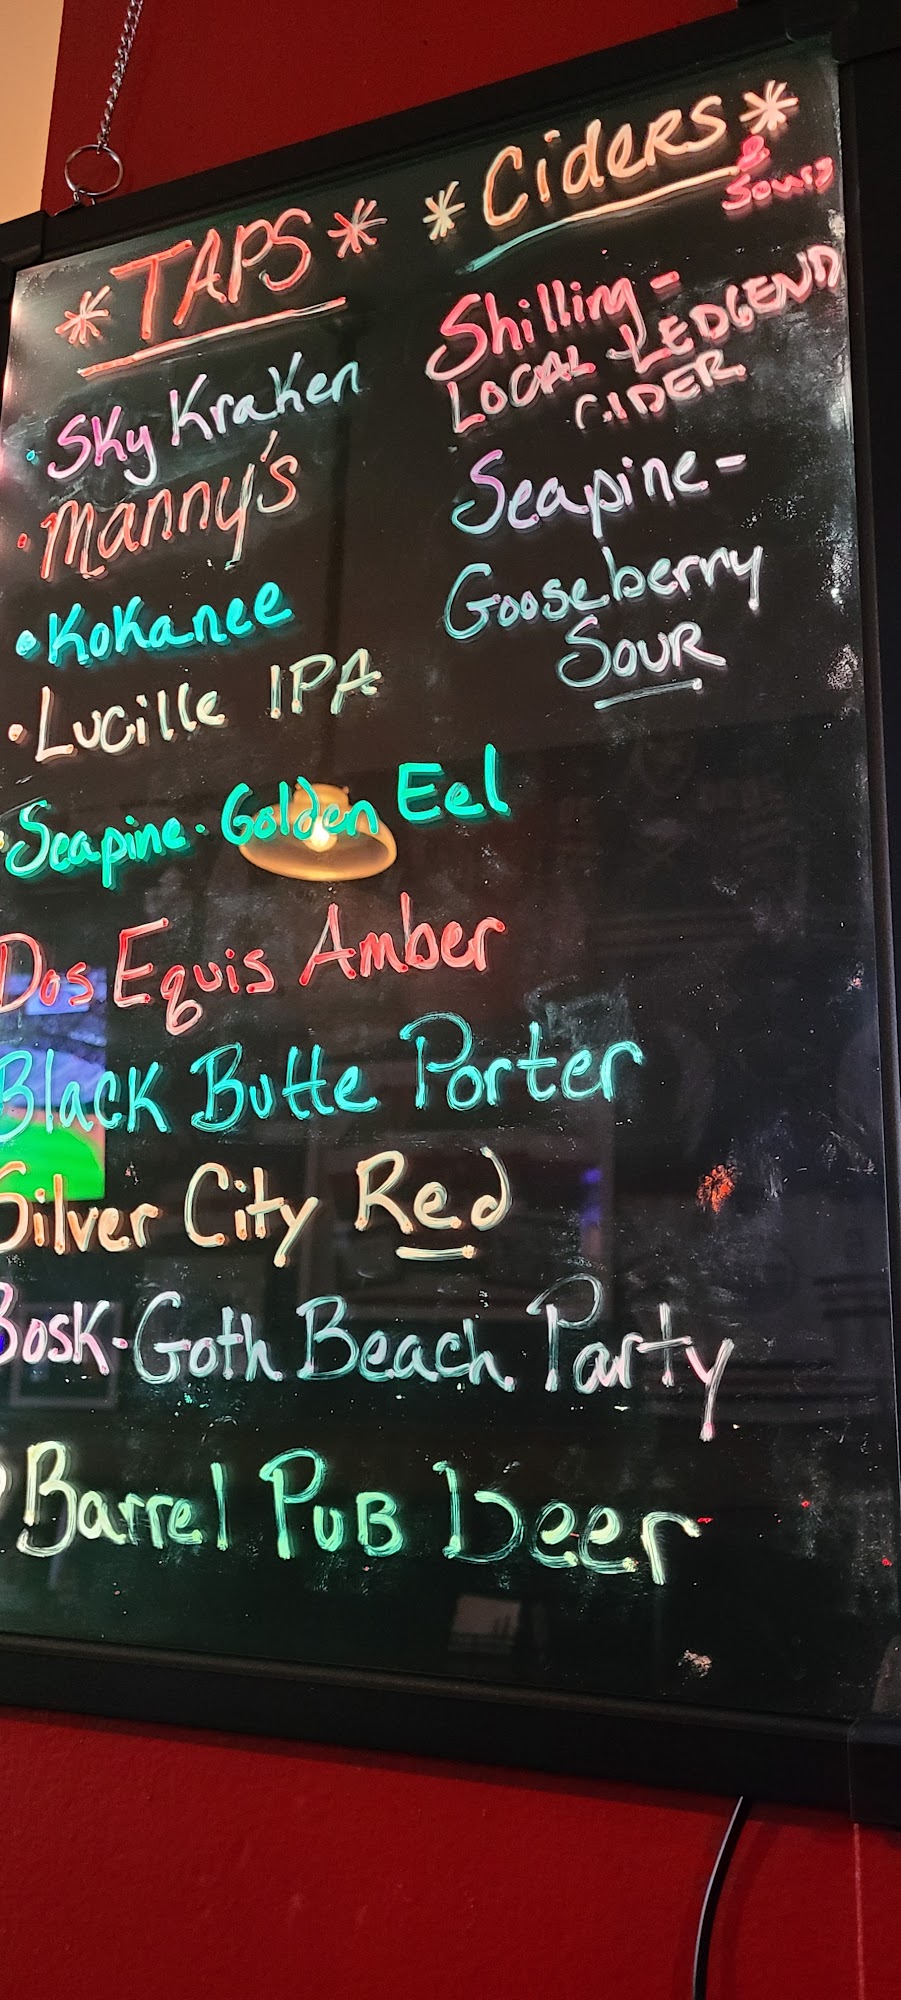 *TAPS*
· Sky Kraken
· Manny's
· Kokanee
· Lucille IPA
· Seapine · Golden Eel
Dos Equis Amber
Black Butte Porter
Silver City Red
Bosk · Goth Beach Party
Barrel Pub beer
* Ciders *
& Sours
Shilling -
LOCAL LEDGEND
CIDER
Seapine -
Gooseberry
SOUR